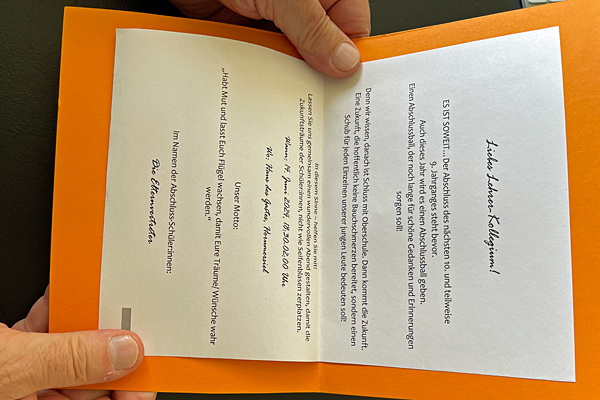 Liebes Lehrer-Kollegium!
ES IST SOWEIT....Der Abschluss des nächsten 10. und teilweise
9. Jahrganges steht bevor.
Auch dieses Jahr wird es einen Abschlussball geben.
Einen Abschlussball, der noch lange für schöne Gedanken und Erinnerungen
sorgen soll!
Denn wir wissen, danach ist Schluss mit Oberschule. Dann kommt die Zukunft.
Eine Zukunft, die hoffentlich keine Bauchschmerzen bereitet, sondern einen
Schub für jeden Einzelnen unserer jungen Leute bedeuten soll!
In diesem Sinne – helfen Sie mit!
Lassen Sie uns gemeinsam einen wundervollen Abend gestalten, damit die
Zukunftsträume der Schüler:innen, nicht wie Seifenblasen zerplatzen.
Wann: 14. Juni 2024, 18.30-02.00 Uhr
Wo: Haus des Gastes, Hornumersiel
Unser Motto:
„Habt Mut und lasst Euch Flügel wachsen, damit Eure Träume/ Wünsche wahr
werden.“
Im Namen der Abschluss-Schüler:innen:
Die Elternvertreter